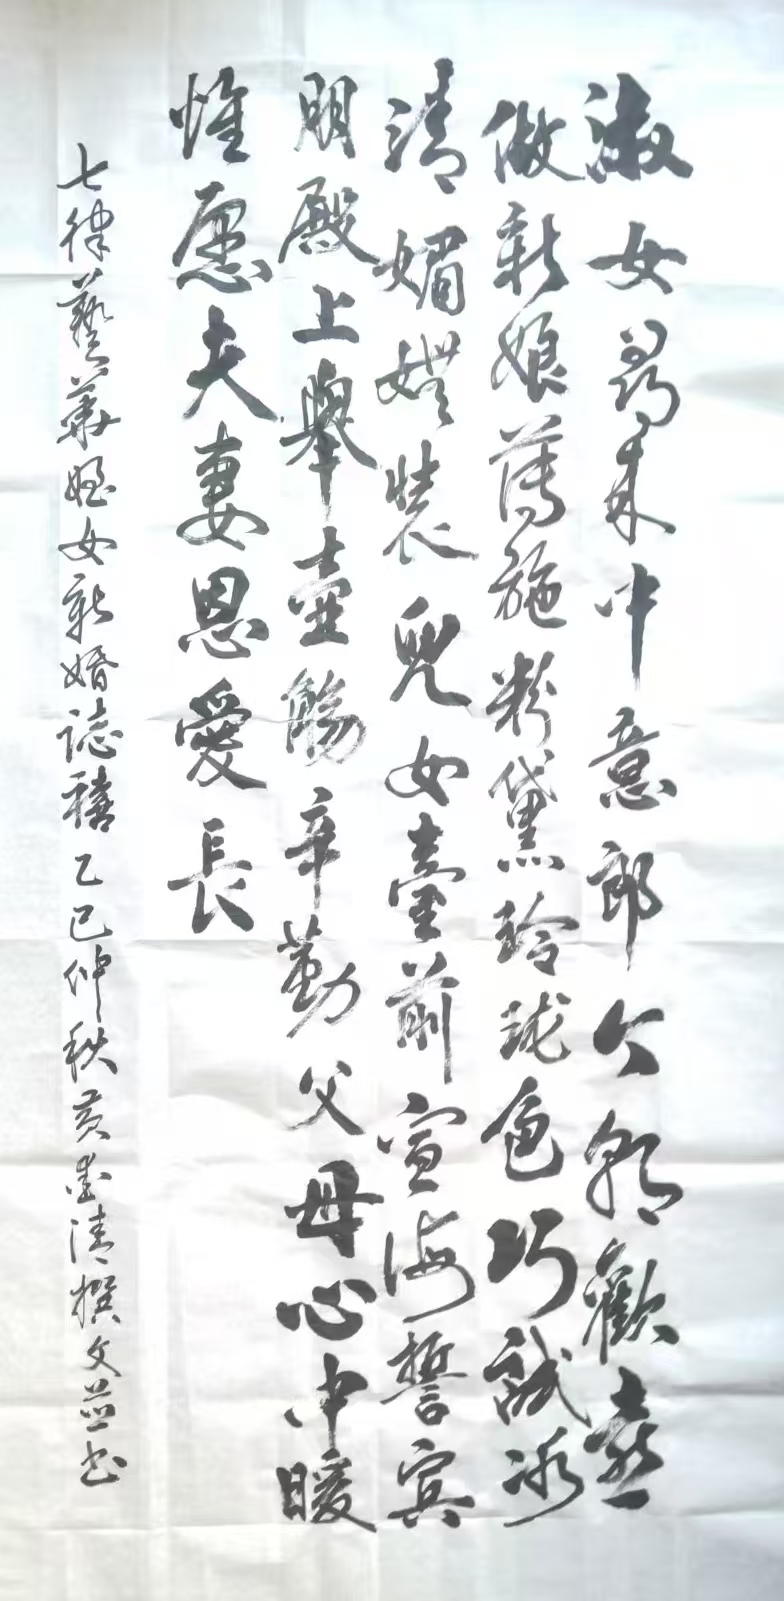 淑女尋來中意郎今朝歡喜
做新娘薄施粉黛玲珑色巧誠冰
清媚嬌裝兒女臺前宣海誓宾
朋殿上舉壺觴辛勤父母心中暖
惟愿夫妻恩愛長
七律藝華姪女新婚誌禧乙巳仲秋黃清撰文並书